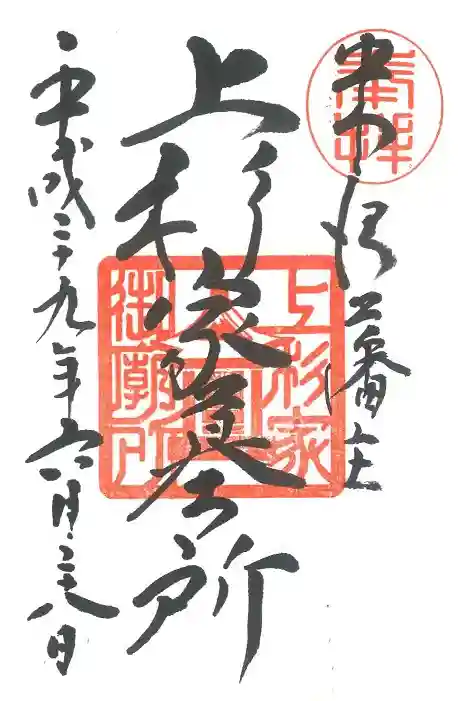 奉拝
米沢藩主
上杉家墓所
上杉家御廟所
平成二十九年六月二十八日